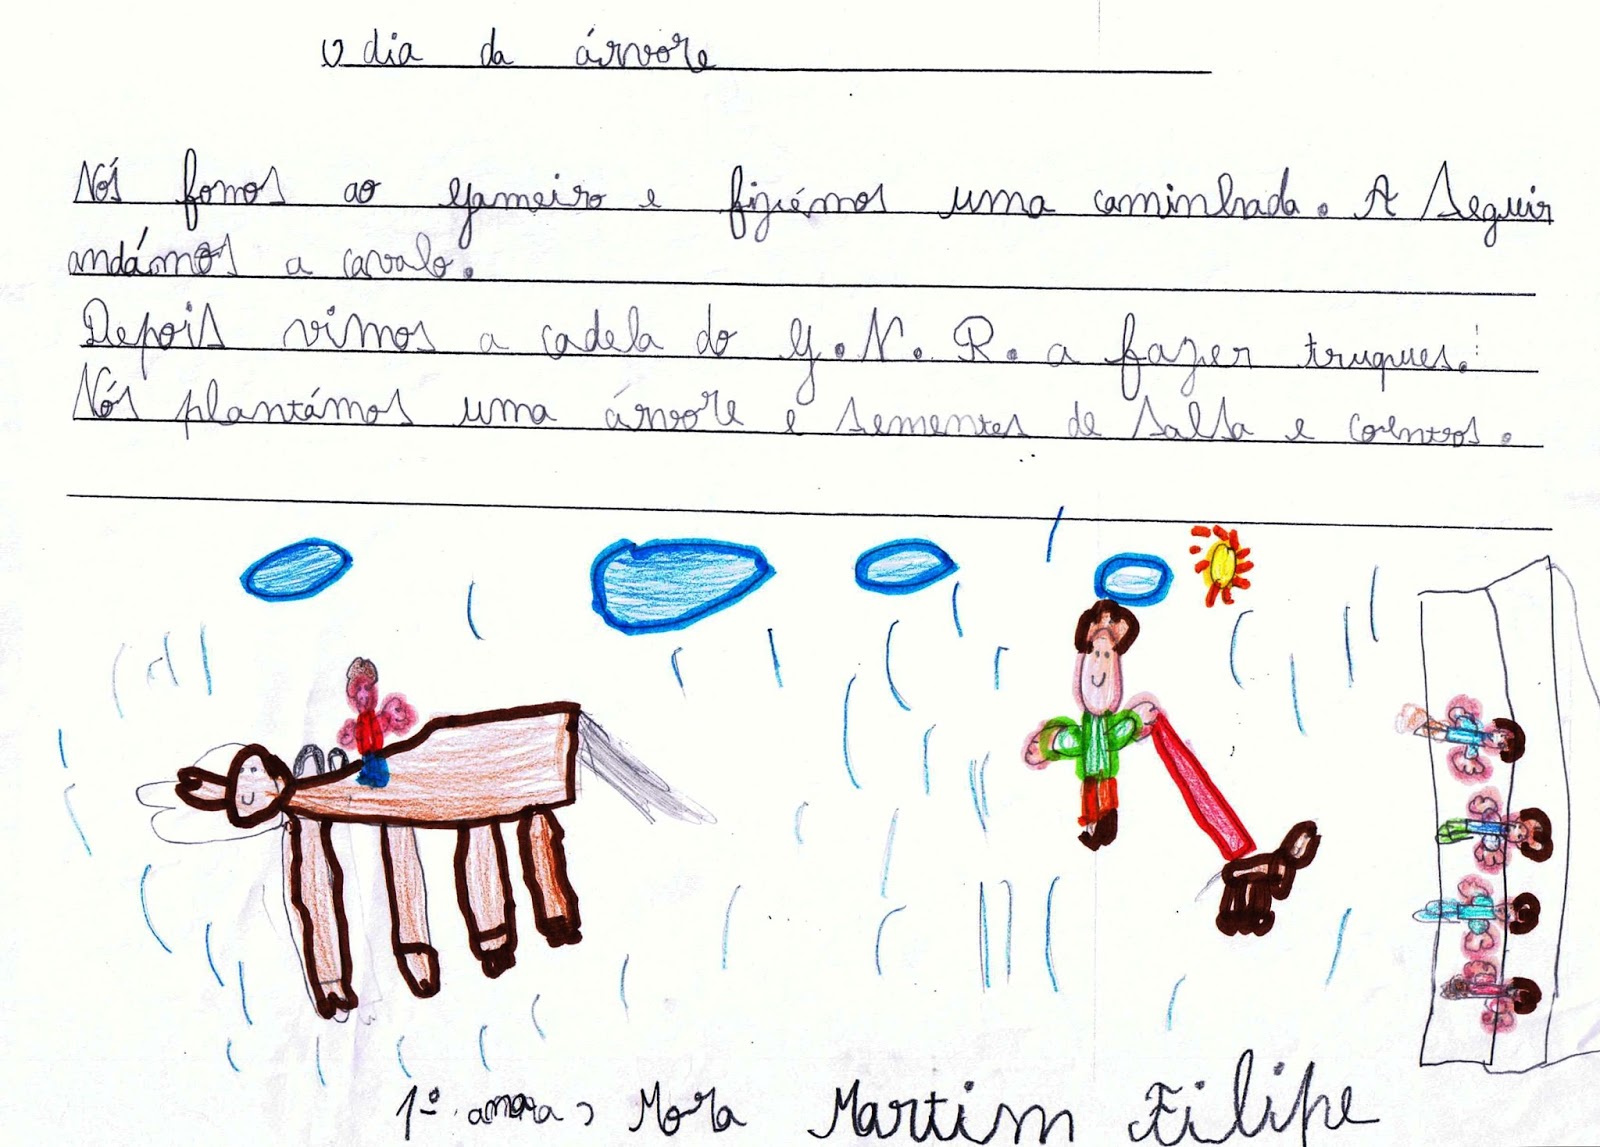 O dia da árvore
Nós fomos ao Gameiro e fiziémos uma caminhada. A Seguir
andámos a cavalo.
Depois vimos a cadela do G. N. R. a fazer truques.
Nós plantámos uma árvore e sementes de salsa e coentros.
1º Mora Martim Filipe